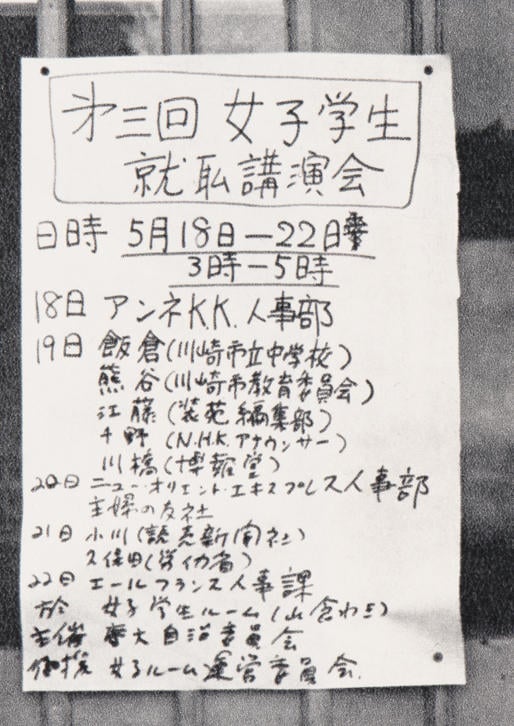 才三回 女子学生
就耺講演会
日時 5月18日－22日
3時－5時
18日 アンネK.K.人事部
19日 飯倉(川崎市立中学校)
熊谷(川崎市教育委員会)
江藤(装苑編集部)
千野(N.H.K.アナウンサー)
川橋(博報堂)
20日 ニュー・オリエント・エキスプレス人事部
主婦の友社
21日 小川(読売新聞社)
久保田(労働省)
22日 エールフランス人事課
於 女子学生ルーム(山舎わき)
主催 東大自治委員会
後援 女子ルーム運営委員会.